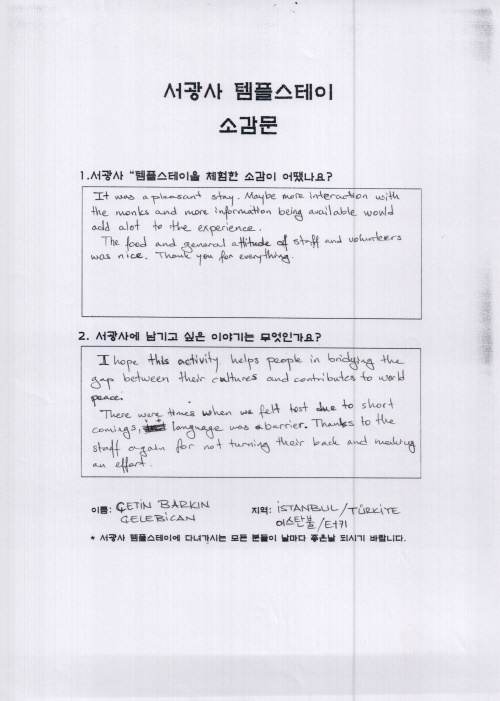 서광사 템플스테이
소감문
1.서광사 "템플스테이을 체험한 소감이 어땠나요?
It was a pleasant stay. Maybe more interaction with
the monks and more information being available would
add alot to the experience.
The food and general attitude of staff and volunteers
was nice. Thank you for everything.
2. 서광사에 남기고 싶은 이야기는 무엇인가요?
I hope this activity helps people in bridging the
gap between their cultures and contributes to world
peace.
There were times when we felt lost due to short
comings, language was a barrier. Thanks to the
staff again for not turning their back and making
an effort.
이름: ÇETİN BARKIN
ÇELEBİCAN
지역: İSTANBUL/TÜRKİYE
이스탄불/터키
* 서광사 템플스테이에 다녀가시는 모든 분들이 날마다 좋은날 되시기 바랍니다.